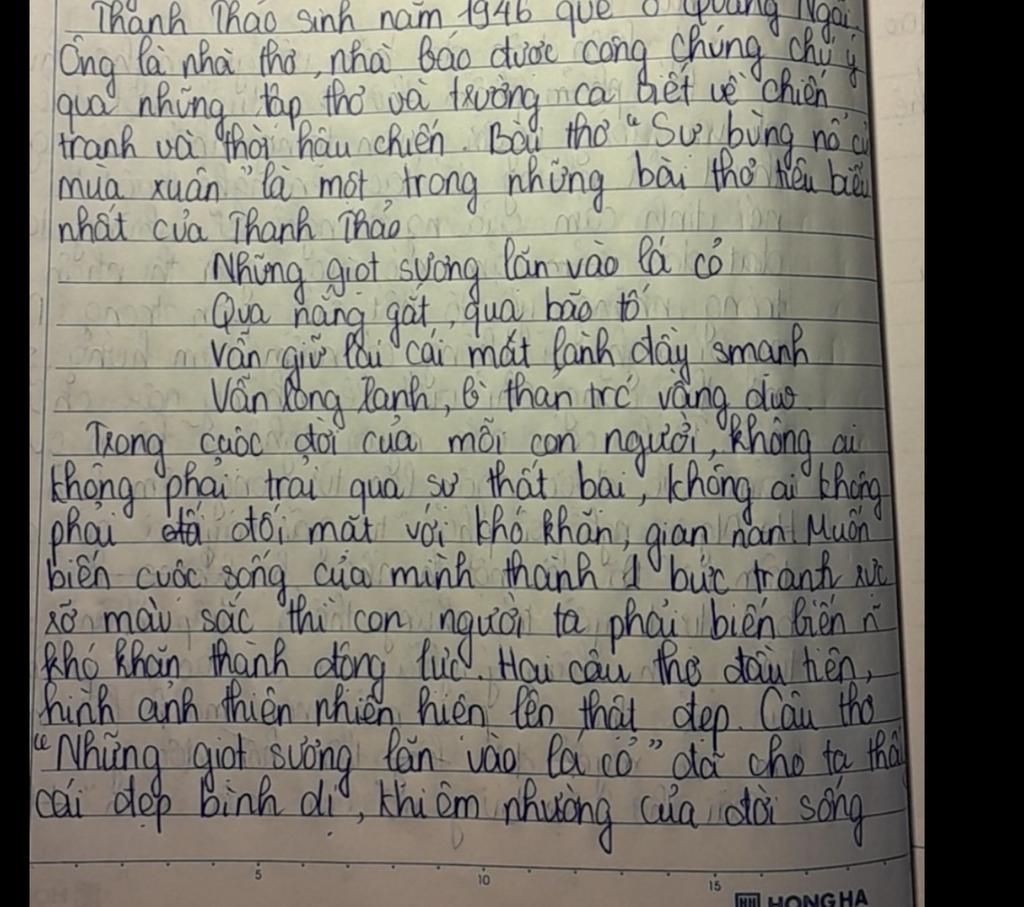 Thanh Thảo sinh năm 1946 quê ở Quảng Ngãi.
Ông là nhà thơ, nhà báo được công chúng chú ý
qua những tập thơ và trường ca biết về chiến
tranh và thời hậu chiến. Bài thơ "Sự bùng nổ củ
mùa xuân" là một trong những bài thơ tiêu biểu
nhất của Thanh Thảo
Những giọt sương lăn vào lá cỏ
Qua nắng gắt, qua bão tố
Vẫn giữ lại cái mát lành đầy smạnh
Vẫn long lanh, bình thản trc vầng dươ
Trong cuộc đời của mỗi con người, không ai
không phải trải qua sự thất bại, không ai không
phải đối mặt với khó khăn, gian nan. Muốn
biến cuộc sống của mình thành 1 bức tranh rực
rỡ màu sắc thì con người ta phải biến biến n~
khó khăn thành động lực. Hai câu thơ đầu tiên,
hình ảnh thiên nhiên hiện lên thật đẹp. Câu thơ
"Những giọt sương lăn vào lá cỏ" đã cho ta thấ
cái đẹp bình dị, khiêm nhường của đời sống
5 10 15
HH HONG HA